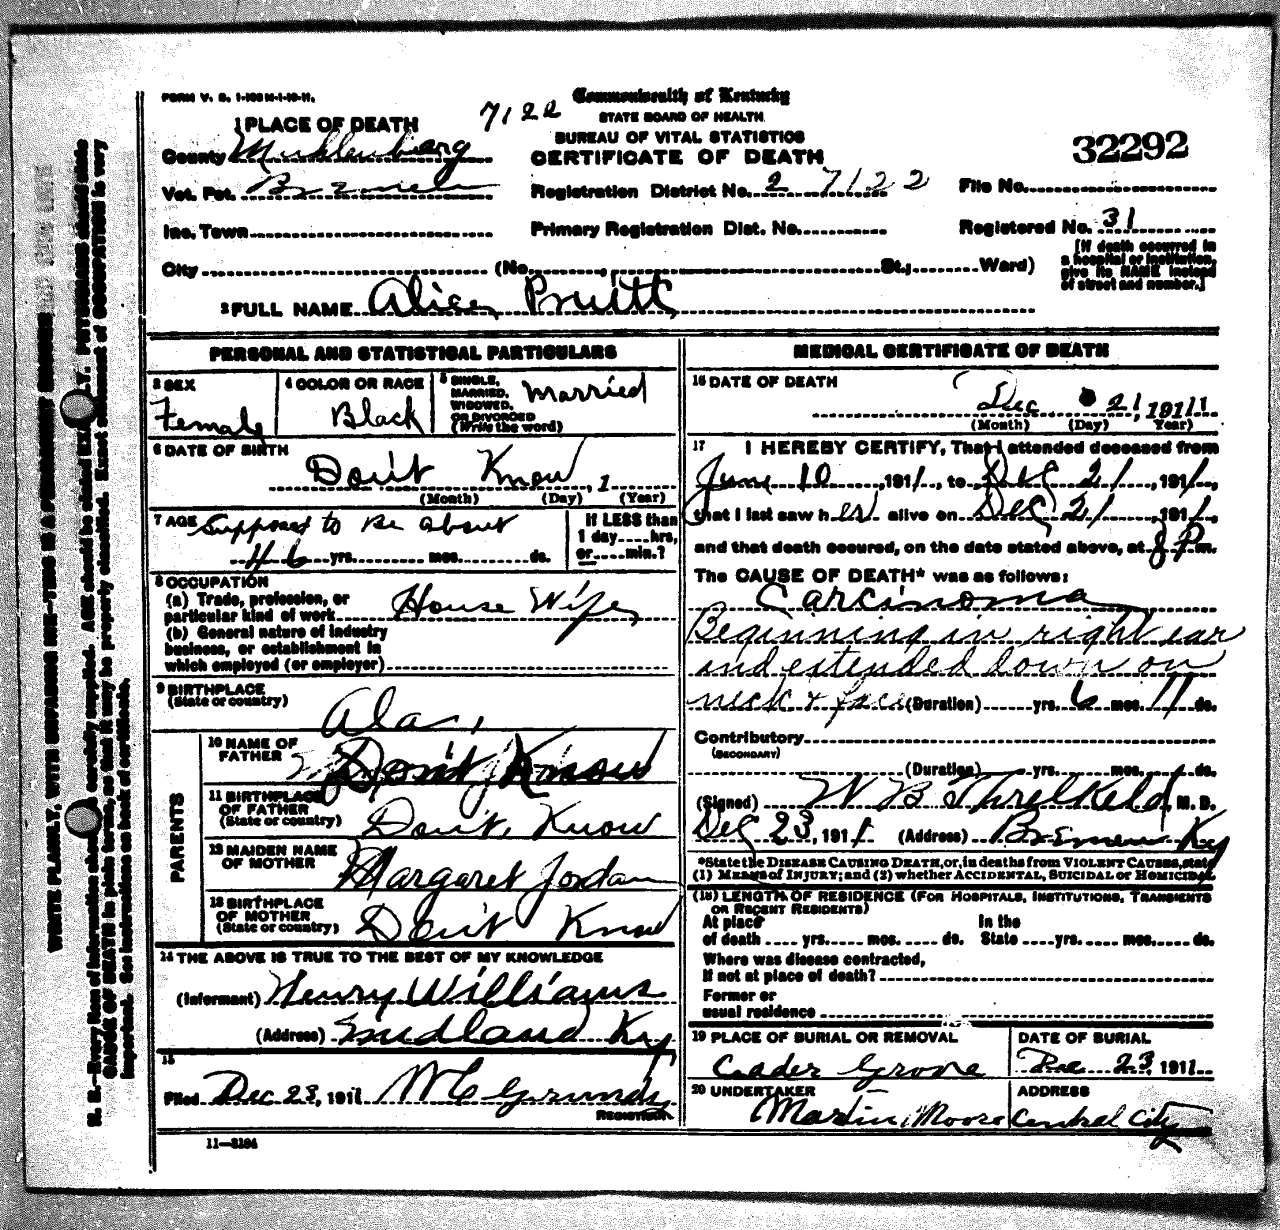 FORM V. S. 1-100M-1-10-11.
7122
Commonwealth of Kentucky
STATE BOARD OF HEALTH
BUREAU OF VITAL STATISTICS
CERTIFICATE OF DEATH
32292
1 PLACE OF DEATH
County Muhlenberg
Vot. Pct. Bremen
Registration District No. 2 7122
File No.
Inc. Town
Primary Registration Dist. No.
Registered No. 31
City (No. , St.; Ward)
[If death occurred in
a hospital or institution,
give its NAME instead
of street and number.]
2 FULL NAME Alice Pruitt
PERSONAL AND STATISTICAL PARTICULARS
3 SEX
Female
4 COLOR OR RACE
Black
5 SINGLE,
MARRIED,
WIDOWED,
OR DIVORCED
(Write the word)
Married
6 DATE OF BIRTH
Don't Know, 1
(Month) (Day) (Year)
7 AGE Supposed to be about
46 yrs. mos. ds.
If LESS than
1 day hrs,
or min.?
8 OCCUPATION
(a) Trade, profession, or
particular kind of work House Wife
(b) General nature of industry
business, or establishment in
which employed (or employer)
9 BIRTHPLACE
(State or country)
Ala.
PARENTS
10 NAME OF
FATHER
Don't Know
11 BIRTHPLACE
OF FATHER
(State or country)
Don't Know
12 MAIDEN NAME
OF MOTHER
Margaret Jordan
13 BIRTHPLACE
OF MOTHER
(State or country)
Don't Know
14 THE ABOVE IS TRUE TO THE BEST OF MY KNOWLEDGE
(Informant) Henry Williams
(Address) Midland Ky
15
Filed Dec 23, 1911 W C Grundy
REGISTRAR
11-3194
MEDICAL CERTIFICATE OF DEATH
16 DATE OF DEATH
Dec 21, 191 11
(Month) (Day) Year)
17 I HEREBY CERTIFY, That I attended deceased from
June 10, 1911, to Dec 21, 1911,
that I last saw her alive on Dec 21, 1911,
and that death occured, on the date stated above, at 8 P.m.
The CAUSE OF DEATH* was as follows:
Carcinoma
Beginning in right ear
and extended down on
neck & face (Duration) yrs. 6 mos. 11 ds.
Contributory
(SECONDARY)
(Duration) yrs. mos. ds.
(Signed) W B Threlkeld, M. D.
Dec 23, 1911 (Address) Bremen Ky
*State the DISEASE CAUSING DEATH, or, in deaths from VIOLENT CAUSES, state
(1) MEANS of INJURY; and (2) whether ACCIDENTAL, SUICIDAL or HOMICIDAL
(18) LENGTH OF RESIDENCE (FOR HOSPITALS, INSTITUTIONS, TRANSIENTS
OR RECENT RESIDENTS)
At place In the
of death yrs. mos. ds. State yrs. mos. ds.
Where was disease contracted,
if not at place of death?
Former or
usual residence
19 PLACE OF BURIAL OR REMOVAL
Ceader Grove
DATE OF BURIAL
Dec 23, 1911
20 UNDERTAKER
Martin Moore
ADDRESS
Central City
WRITE PLAINLY, WITH UNFADING INK—THIS IS A PERMANENT RECORD
N. B.—Every item of information should carefully supplied. AGE should be stated EXACTLY. PHYSICIANS should state
CAUSE OF DEATH in plain terms, so that it may be properly classified. Exact statement of OCCUPATION is very
important. See instructions on back of certificate.